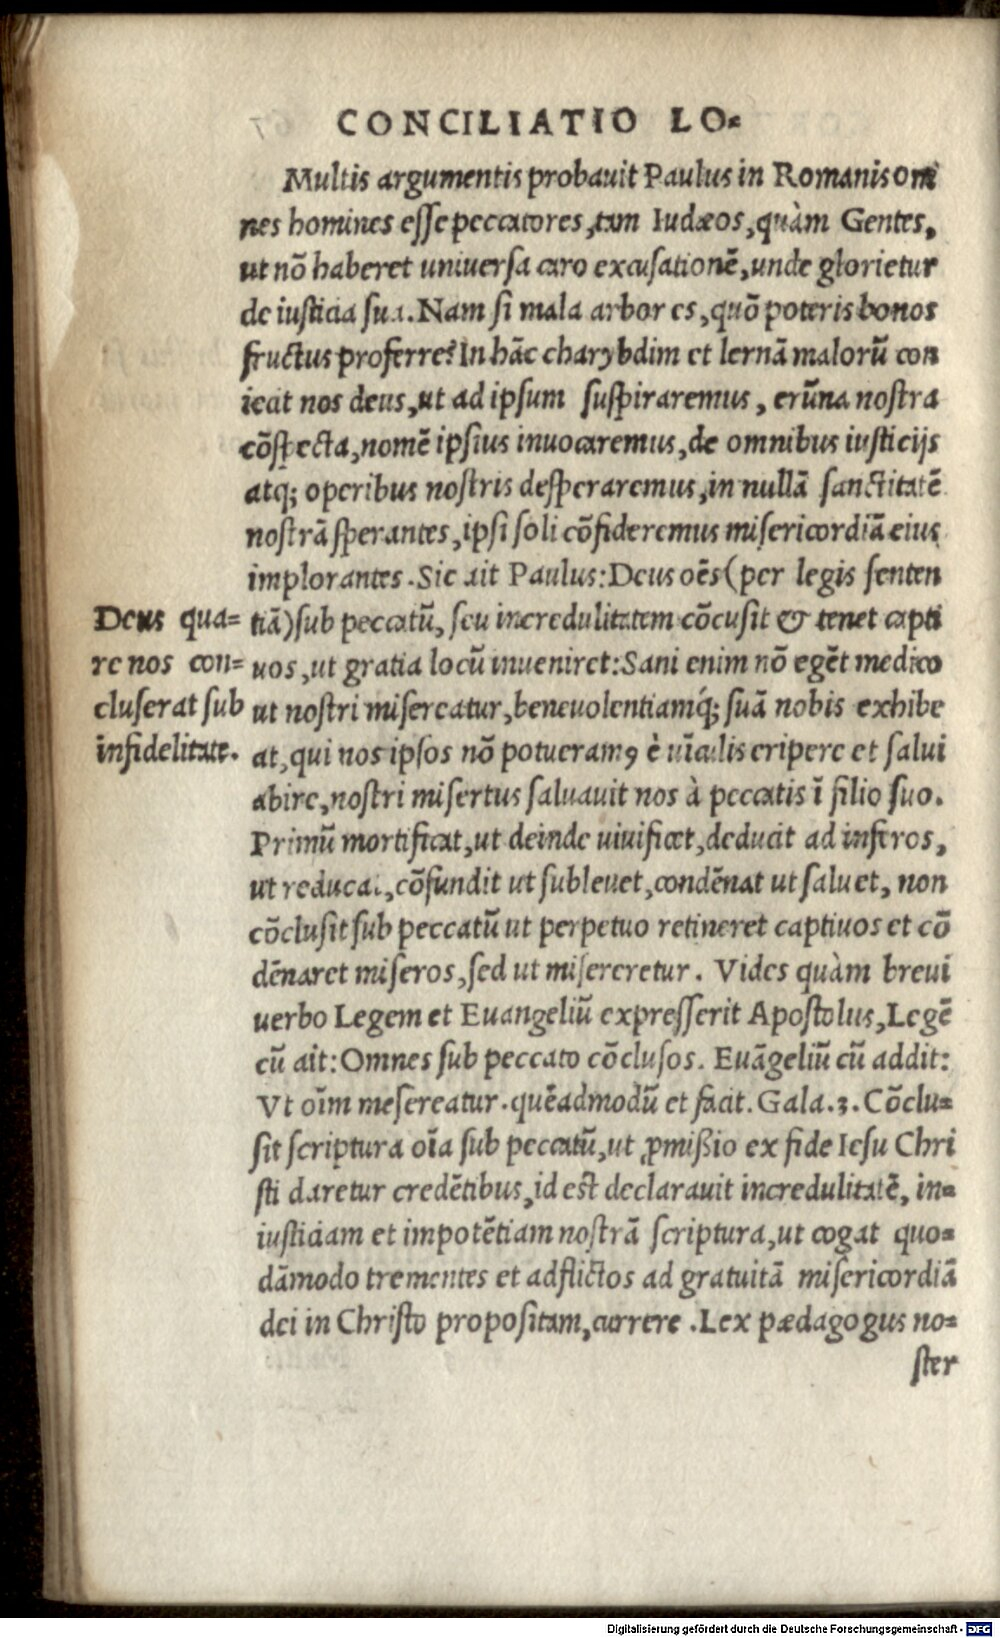 CONCILIATIO LO-
Multis argumentis probauit Paulus in Romanis om
nes homines esse peccatores, tam Iudæos, quàm Gentes,
ut nõ haberet uniuersa caro excusationẽ, unde glorietur
de iusticia sua. Nam si mala arbor es, quõ poteris bonos
fructus proferre? In hãc charybdim et lernã malorũ con
iecit nos deus, ut ad ipsum suspiraremus, erũna nostra
cõspecta, nomẽ ipsius inuocaremus, de omnibus iusticijs
atq; operibus nostris desperaremus, in nullã sanctitatẽ
nostrã sperantes, ipsi soli cõfideremus misericordiã eius
implorantes. Sic ait Paulus: Deus oẽs (per legis senten
Deus qua-
re nos con-
cluserat sub
infidelitate.
tiã) sub peccatũ, seu incredulitatem cõcusit & tenet capti
uos, ut gratia locũ inueniret: Sani enim nõ egẽt medico
ut nostri misereatur, beneuolentiamq́; suã nobis exhibe
at, qui nos ipsos nõ potueramꝯ è uĩculis eripere et salui
abire, nostri misertus saluauit nos à peccatis ĩ filio suo.
Primũ mortificat, ut deinde uiuificet, deducit ad inferos,
ut reducat, cõfundit ut subleuet, condẽnat ut saluet, non
cõclusit sub peccatũ ut perpetuo retineret captiuos et cõ
dẽnaret miseros, sed ut misereretur. Vides quàm breui
uerbo Legem et Euangeliũ expresserit Apostolus, Legẽ
cũ ait: Omnes sub peccato cõclusos. Euãgeliũ cũ addit:
Vt oĩm mesereatur. quẽadmodũ et facit. Gala. 3. Cõclu-
sit scriptura oĩa sub peccatũ, ut ꝓmißio ex fide Iesu Chri
sti daretur credẽtibus, id est declarauit incredulitatẽ, in-
iusticiam et impotẽtiam nostrã scriptura, ut cogat quo-
dãmodo trementes et adflictos ad gratuitã misericordiã
dei in Christo propositam, currere. Lex pædagogus no-
ster
Digitalisierung gefördert durch die Deutsche Forschungsgemeinschaft - DFG